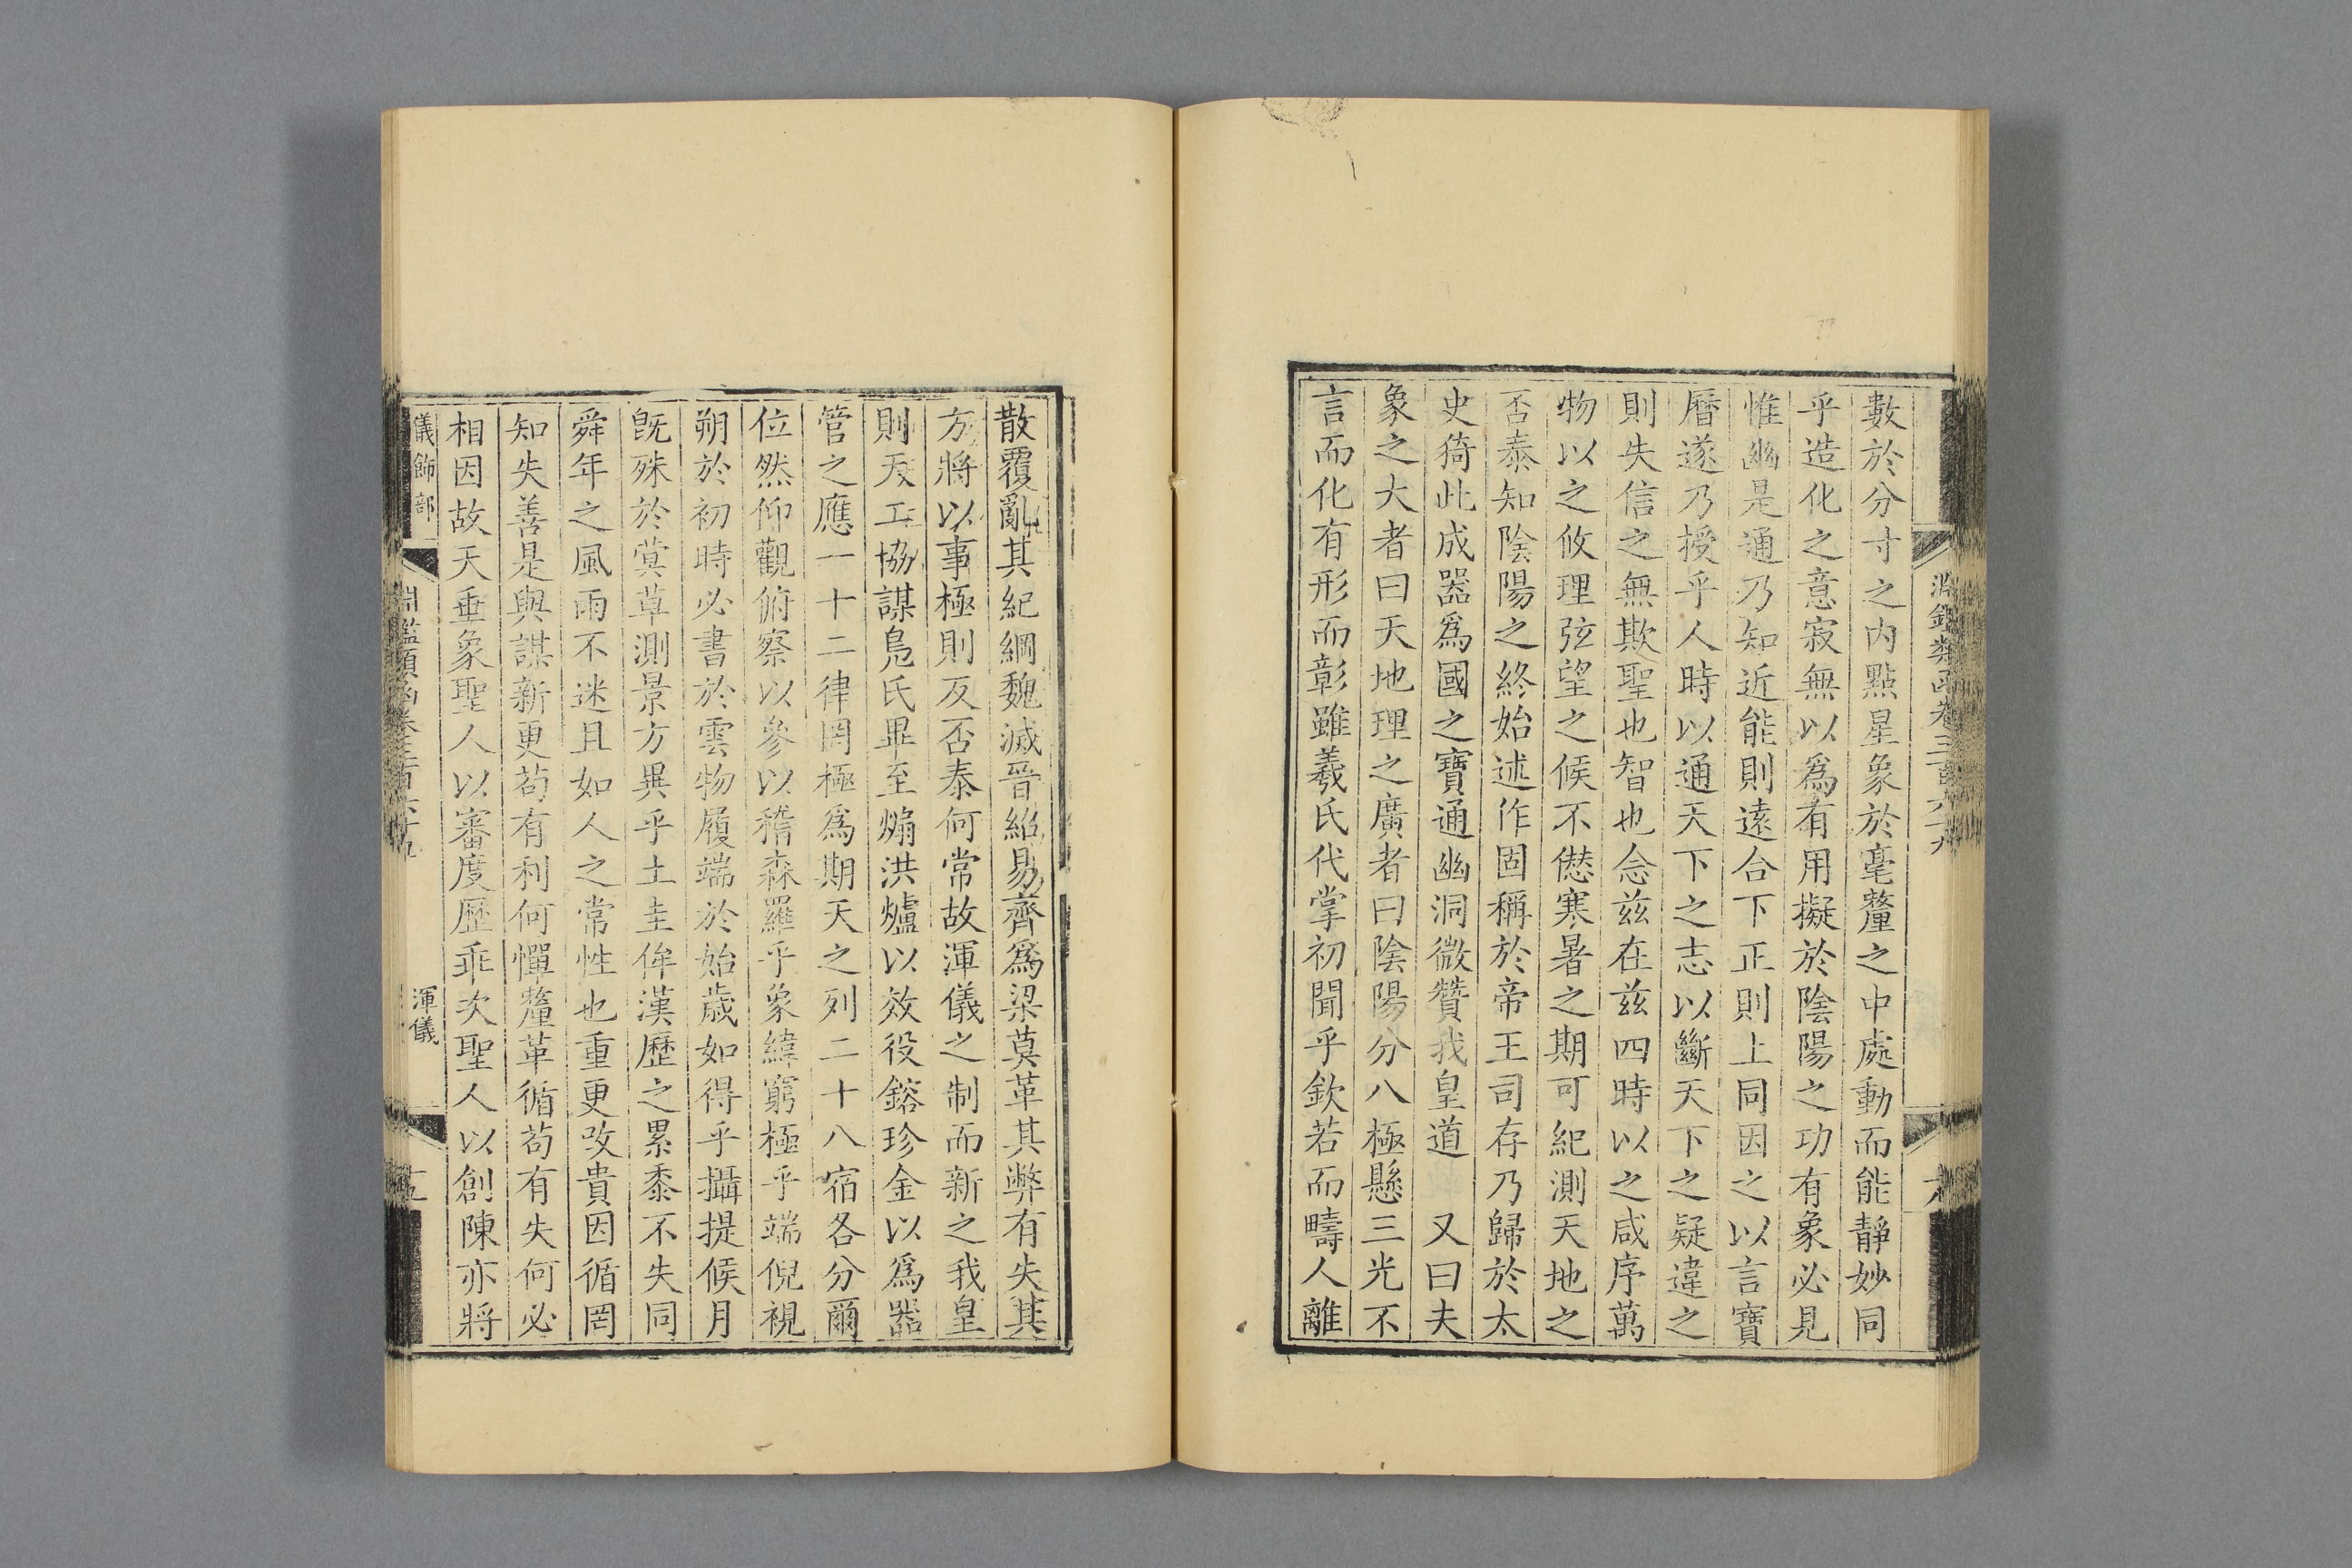 數於分寸之内點星象於毫釐之中處動而能靜妙同
乎造化之意寂無以爲有用擬於陰陽之功有象必見
惟幽是通乃知近能則遠合下正則上同因之以言寶
曆遂乃授乎人時以通天下之志以斷天下之疑違之
則失信之無欺聖也智也念兹在兹四時以之咸序萬
物以之攸理弦望之候不僁寒暑之期可紀測天地之
否泰知陰陽之終始述作固稱於帝王司存乃歸於太
史猗此成器爲國之寶通幽洞微贊我皇道　又曰夫
象之大者曰天地理之廣者曰陰陽分八極懸三光不
言而化有形而彰雖羲氏代掌初聞乎欽若而疇人離
散覆亂其紀綱魏滅晉紹易齊爲梁莫革其弊有失其
方將以事極則反否泰何常故渾儀之制而新之我皇
則天工協謀鳧氏畢至煽洪爐以效役鎔珍金以爲器
管之應一十二律罔極爲期天之列二十八宿各分爾
位然仰觀俯察以參以稽森羅乎象緯窮極乎端倪視
朔於初時必書於雲物履端於始歲如得乎攝提候月
旣殊於蓂草測景方異乎土圭侔漢歷之累黍不失同
舜年之風雨不迷且如人之常性也重更改貴因循罔
知失善是與謀新更苟有利何憚釐革循苟有失何必
相因故天垂象聖人以審度歷乖次聖人以創陳亦將
儀飾部
淵鑑類函卷三百六十九
渾儀